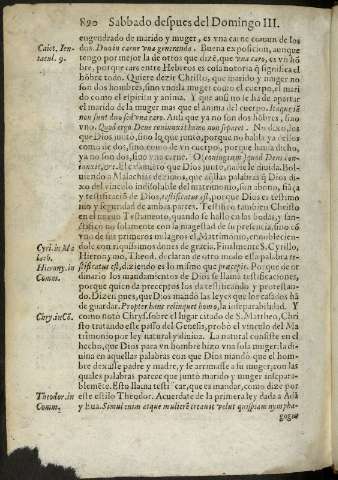 890 Sabbado despues del Domingo III.
engendrado de marido y muger, es vna carne comun de los
Caiet. Ien-
tacul. 9.
dos. Duo in carne vna generenda. Buena exposicion, aunque
tengo por mejor la de otros que dizē, que vna caro, es vn hō
bre, porque caro entre Hebreos es cosa notoria q̄ significa el
hōbre todo. Quiere dezir Christo, que marido y muger no
son dos hombres, sino vno: la muger como el cuerpo, el mari
do como el espiritu y anima. Y que assi no se ha de apartar
el marido de la muger mas que el anima del cuerpo. Itaque iā
non sunt duo sed vna caro. Assi que ya no son dos hōbres, sino
vno. Quod ergo Deus coniunxit homo non separet. No dixo, los
que Dios juntò, sino lo que juntò, porque no habla ya dellos
como de dos, sino como de vn cuerpo, porque hauia dicho,
ya no son dos, sino vna carne. O, coniugium quod Deus con-
iunxit, &c. El casamiento que Dios juntò, nadie le diuida. Bol-
uiendo a Malachias dezimos, que aq̄llas palabras q̄ Dios di-
xo del vinculo indisoluble del matrimonio, son abono, fiāça
y testificaciō de Dios, testificatus est, porque Dios es testimo
nio y seguridad de ambas partes. Testificò tambien Christo
en el nueuo Testamento, quando se hallo en las bodas, y san-
ctificò no solamente con la magestad de su presencia, sino cō
vno de los primeros milagros el Matrimonio, ennobleciēn-
Cyri. in Ma
lach.
dole con riquissimos dones de gracia. Finalmente S. Cyrillo,
Hierony.in
Comm.
Hieronymo, Theod. declaran de otro modo esta palabra te-
stificatus est, diziendo es lo mismo que præcepit. Porque de or
dinario los mandamientos de Dios se llamā testificaciones,
porque quien da preceptos los da testificando y protestan-
do. Dizen pues, que Dios mandò las leyes que los casados hā
de guardar. Propter hanc relinquet homo, la inseparabilidad. Y
Chry.in Cō.
como notò Chrys. sobre el lugar citado de S. Mattheo, Chri
sto tratando este passo del Genesis, prouò el vinculo del Ma
trimonio por ley natural y diuina. La natural consiste en el
hecho, que Dios para vn hombre hizo vna sola muger: la di-
uina en aquellas palabras con que Dios mandò que el hom-
bre dexasse padre y madre, y se arrimasse a su muger, con las
quales palabras parece que juntò marido y muger insepara-
blemēte. Esto llama testificar, que es mandar, como dize por
Theodor.in
Comm.
este estilo Theodor. Acuerdate de la primera ley dada a Adā
y Eua. Simul enim atque mulierē creauit velut quispiam nympha-
gogus